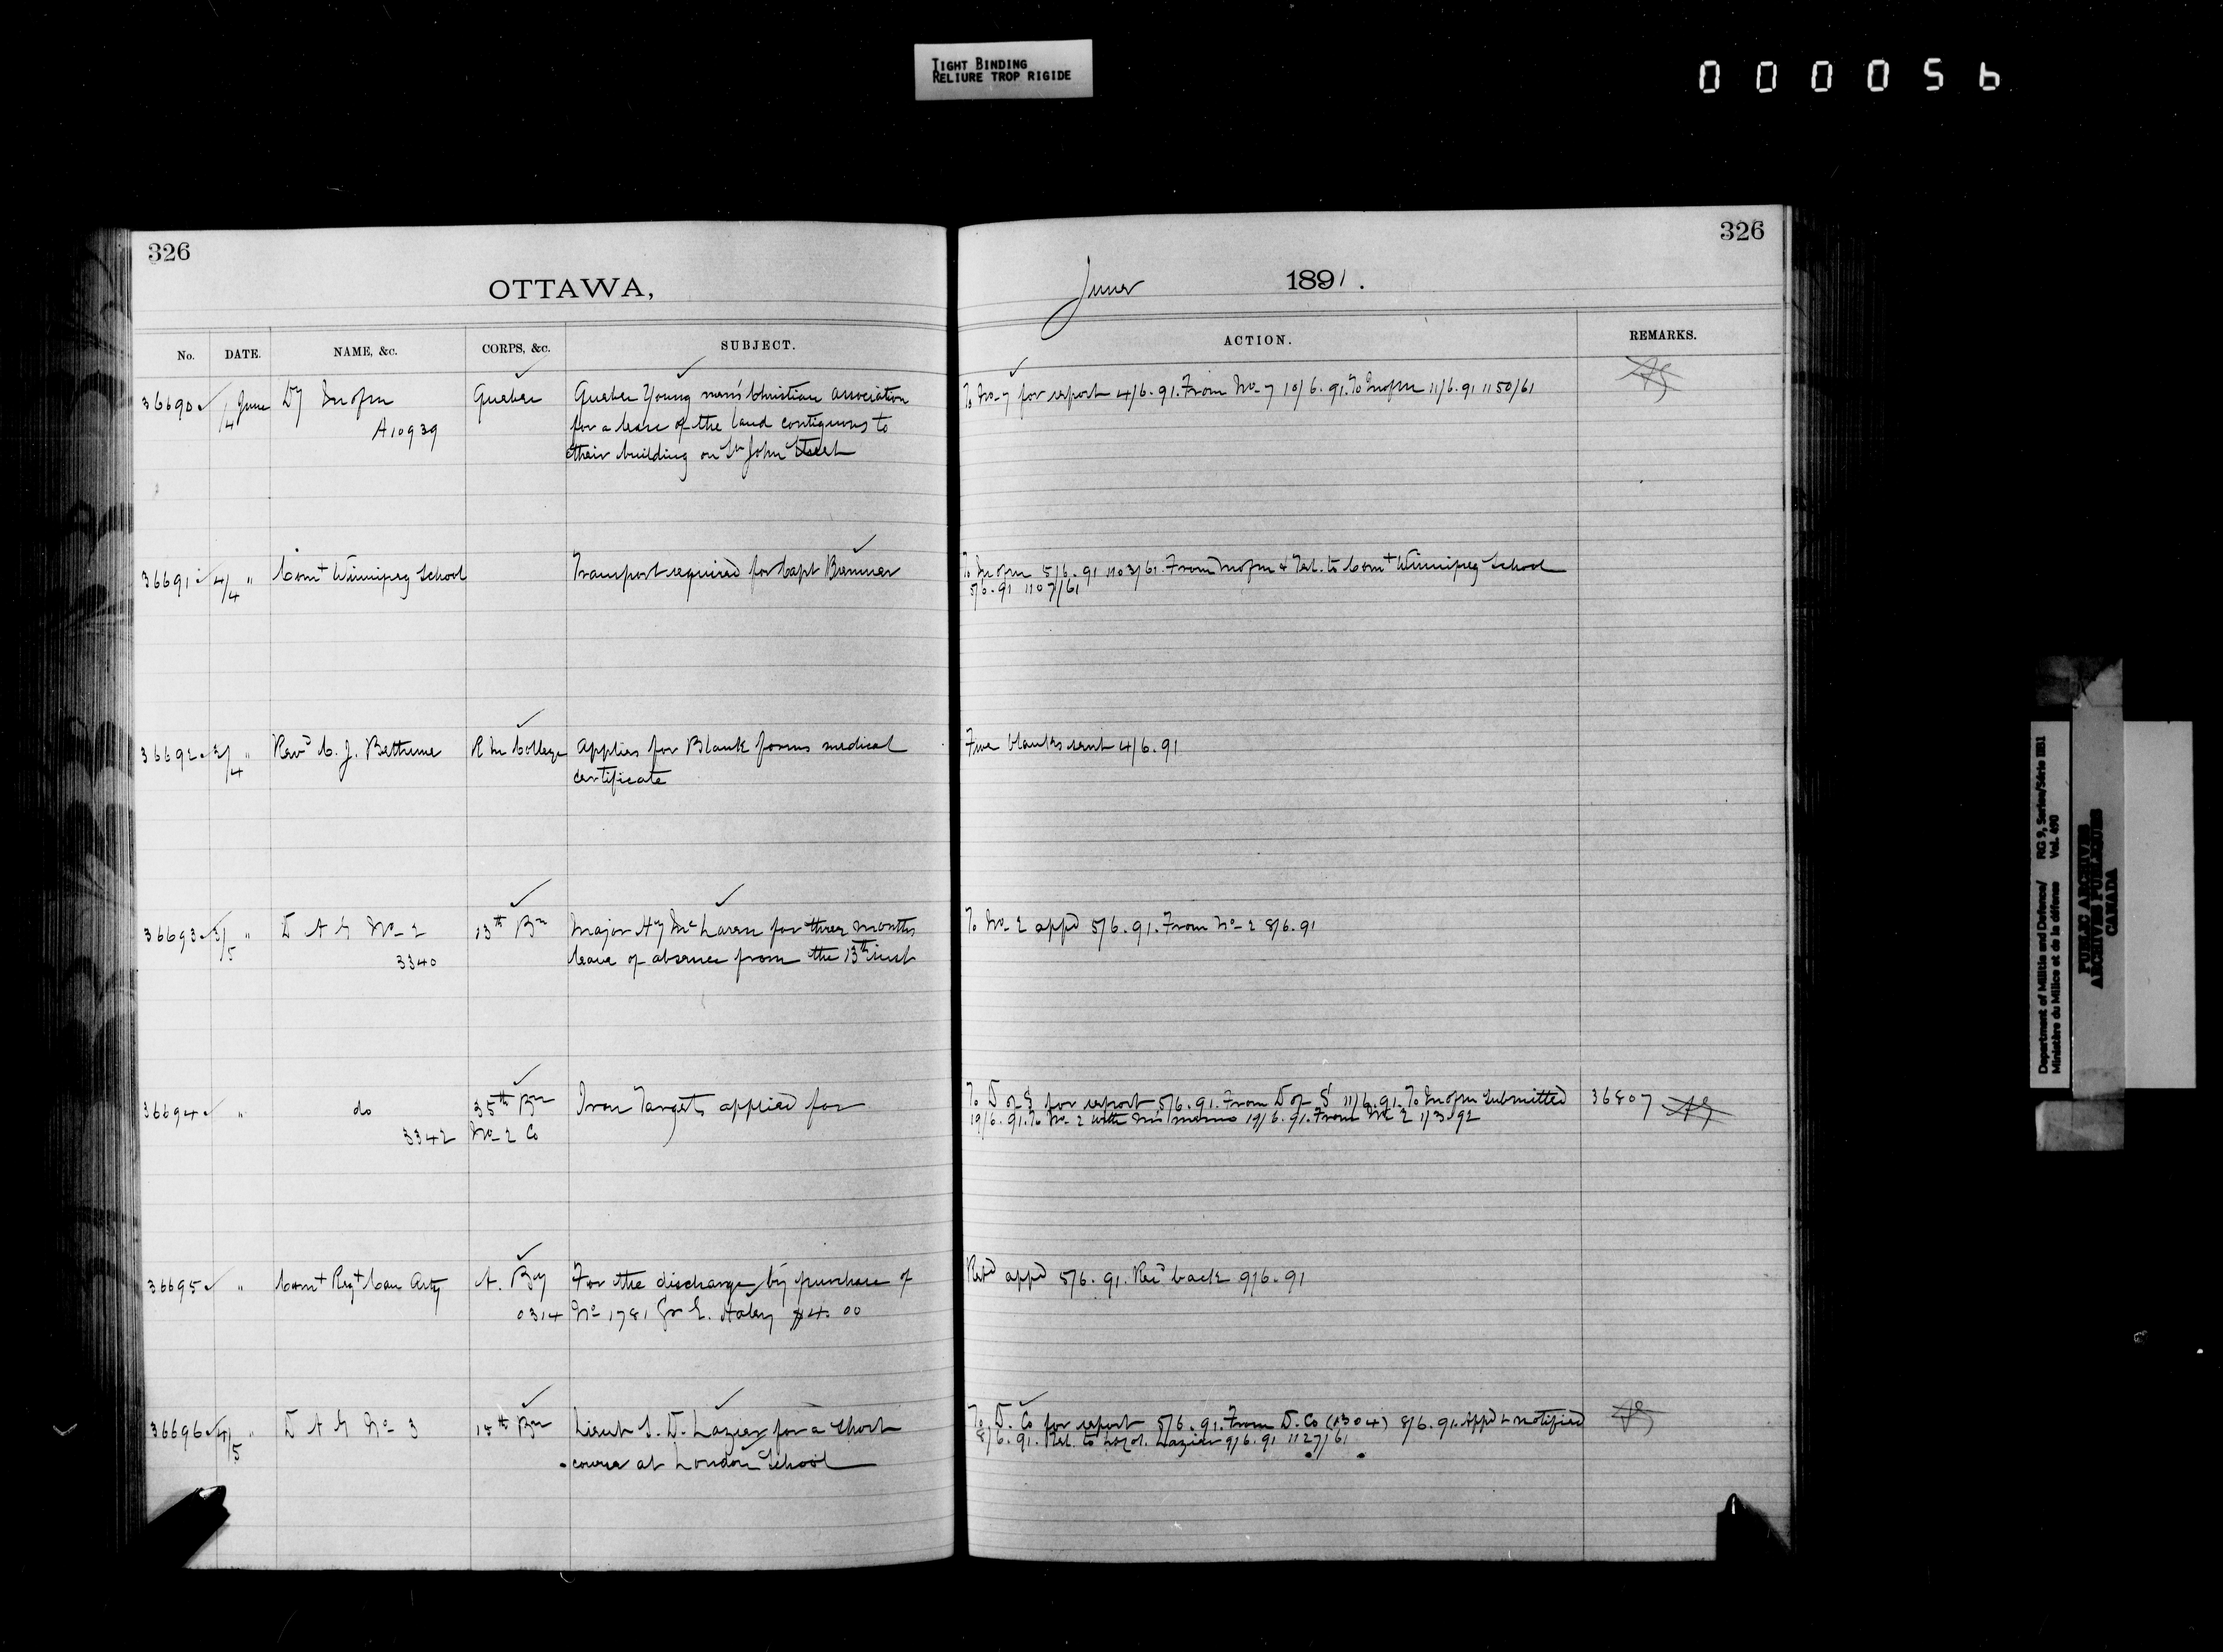 TIGHT BINDING
RELIURE TROP RIGIDE
000056
326
OTTAWA,
No. DATE. NAME, &c. CORPS, &c. SUBJECT.
36690 /4 June Dy M of M Quebec Quebec Young men's Christian association
A10939 for a lease of the land contiguous to
their building on St John Street
36691 4/4 " Comt Winnipeg School Transport required for Capt
36692 3/4 " Revd C. J. Bethune R M College applies for Blank forms medical
certificate
36693 3/5 " D A G No 2 13th Bn Major Hy McLaren for three months
3340 leave of absence from the 13th inst
36694 " do 35th Bn Iron Targets applied for
3342 No 2 Co
36695 " Comt Regt Can Arty A. By For the discharge by purchase of
0314 No 1781 Gr E. Haley $4.00
36696 4/5 " D A G No 3 15th Bn Lieut S. D. Lazier for a short
course at London School
326
June 1891.
ACTION. REMARKS.
To No 7 for report 4/6.91. From No 7 10/6.91. To M of M 11/6.91 1150/61
To M of M 5/6.91 1103/61. From M of M & Tel. to Comt Winnipeg School
5/6.91 1107/61
Five blanks sent 4/6.91
To No 2 appd 5/6.91. From No 2 8/6.91
To D of S for report 5/6.91. From D of S 11/6.91. To M of M submitted 36807
19/6.91. To No 2 with memo 19/6.91. From No 2 1/3.92
Retd appd 5/6.91. Recd back 9/6.91
To D. Co for report 5/6.91. From D. Co (1304) 8/6.91. Appd & notified
8/6.91. Lazier 9/6.91 1127/61
Department of Militia and Defence/ RG 9, Series/Série IIB1
Ministère du Milice et de la défense Vol. 490
PUBLIC ARCHIVES
ARCHIVES PUBLIQUES
CANADA